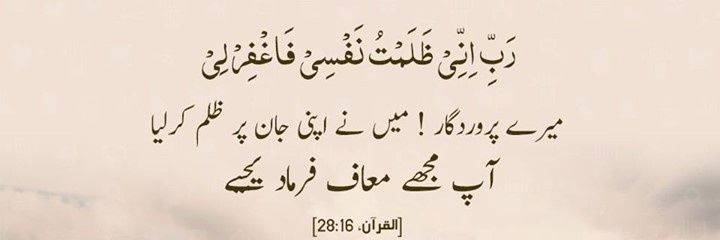 رَبِّ اِنِّیْ ظَلَمْتُ نَفْسِیْ فَاغْفِرْلِیْ
میرے پروردگار ! میں نے اپنی جان پر ظلم کرلیا
آپ مجھے معاف فرماد یجیے
[القرآن، 28:16]